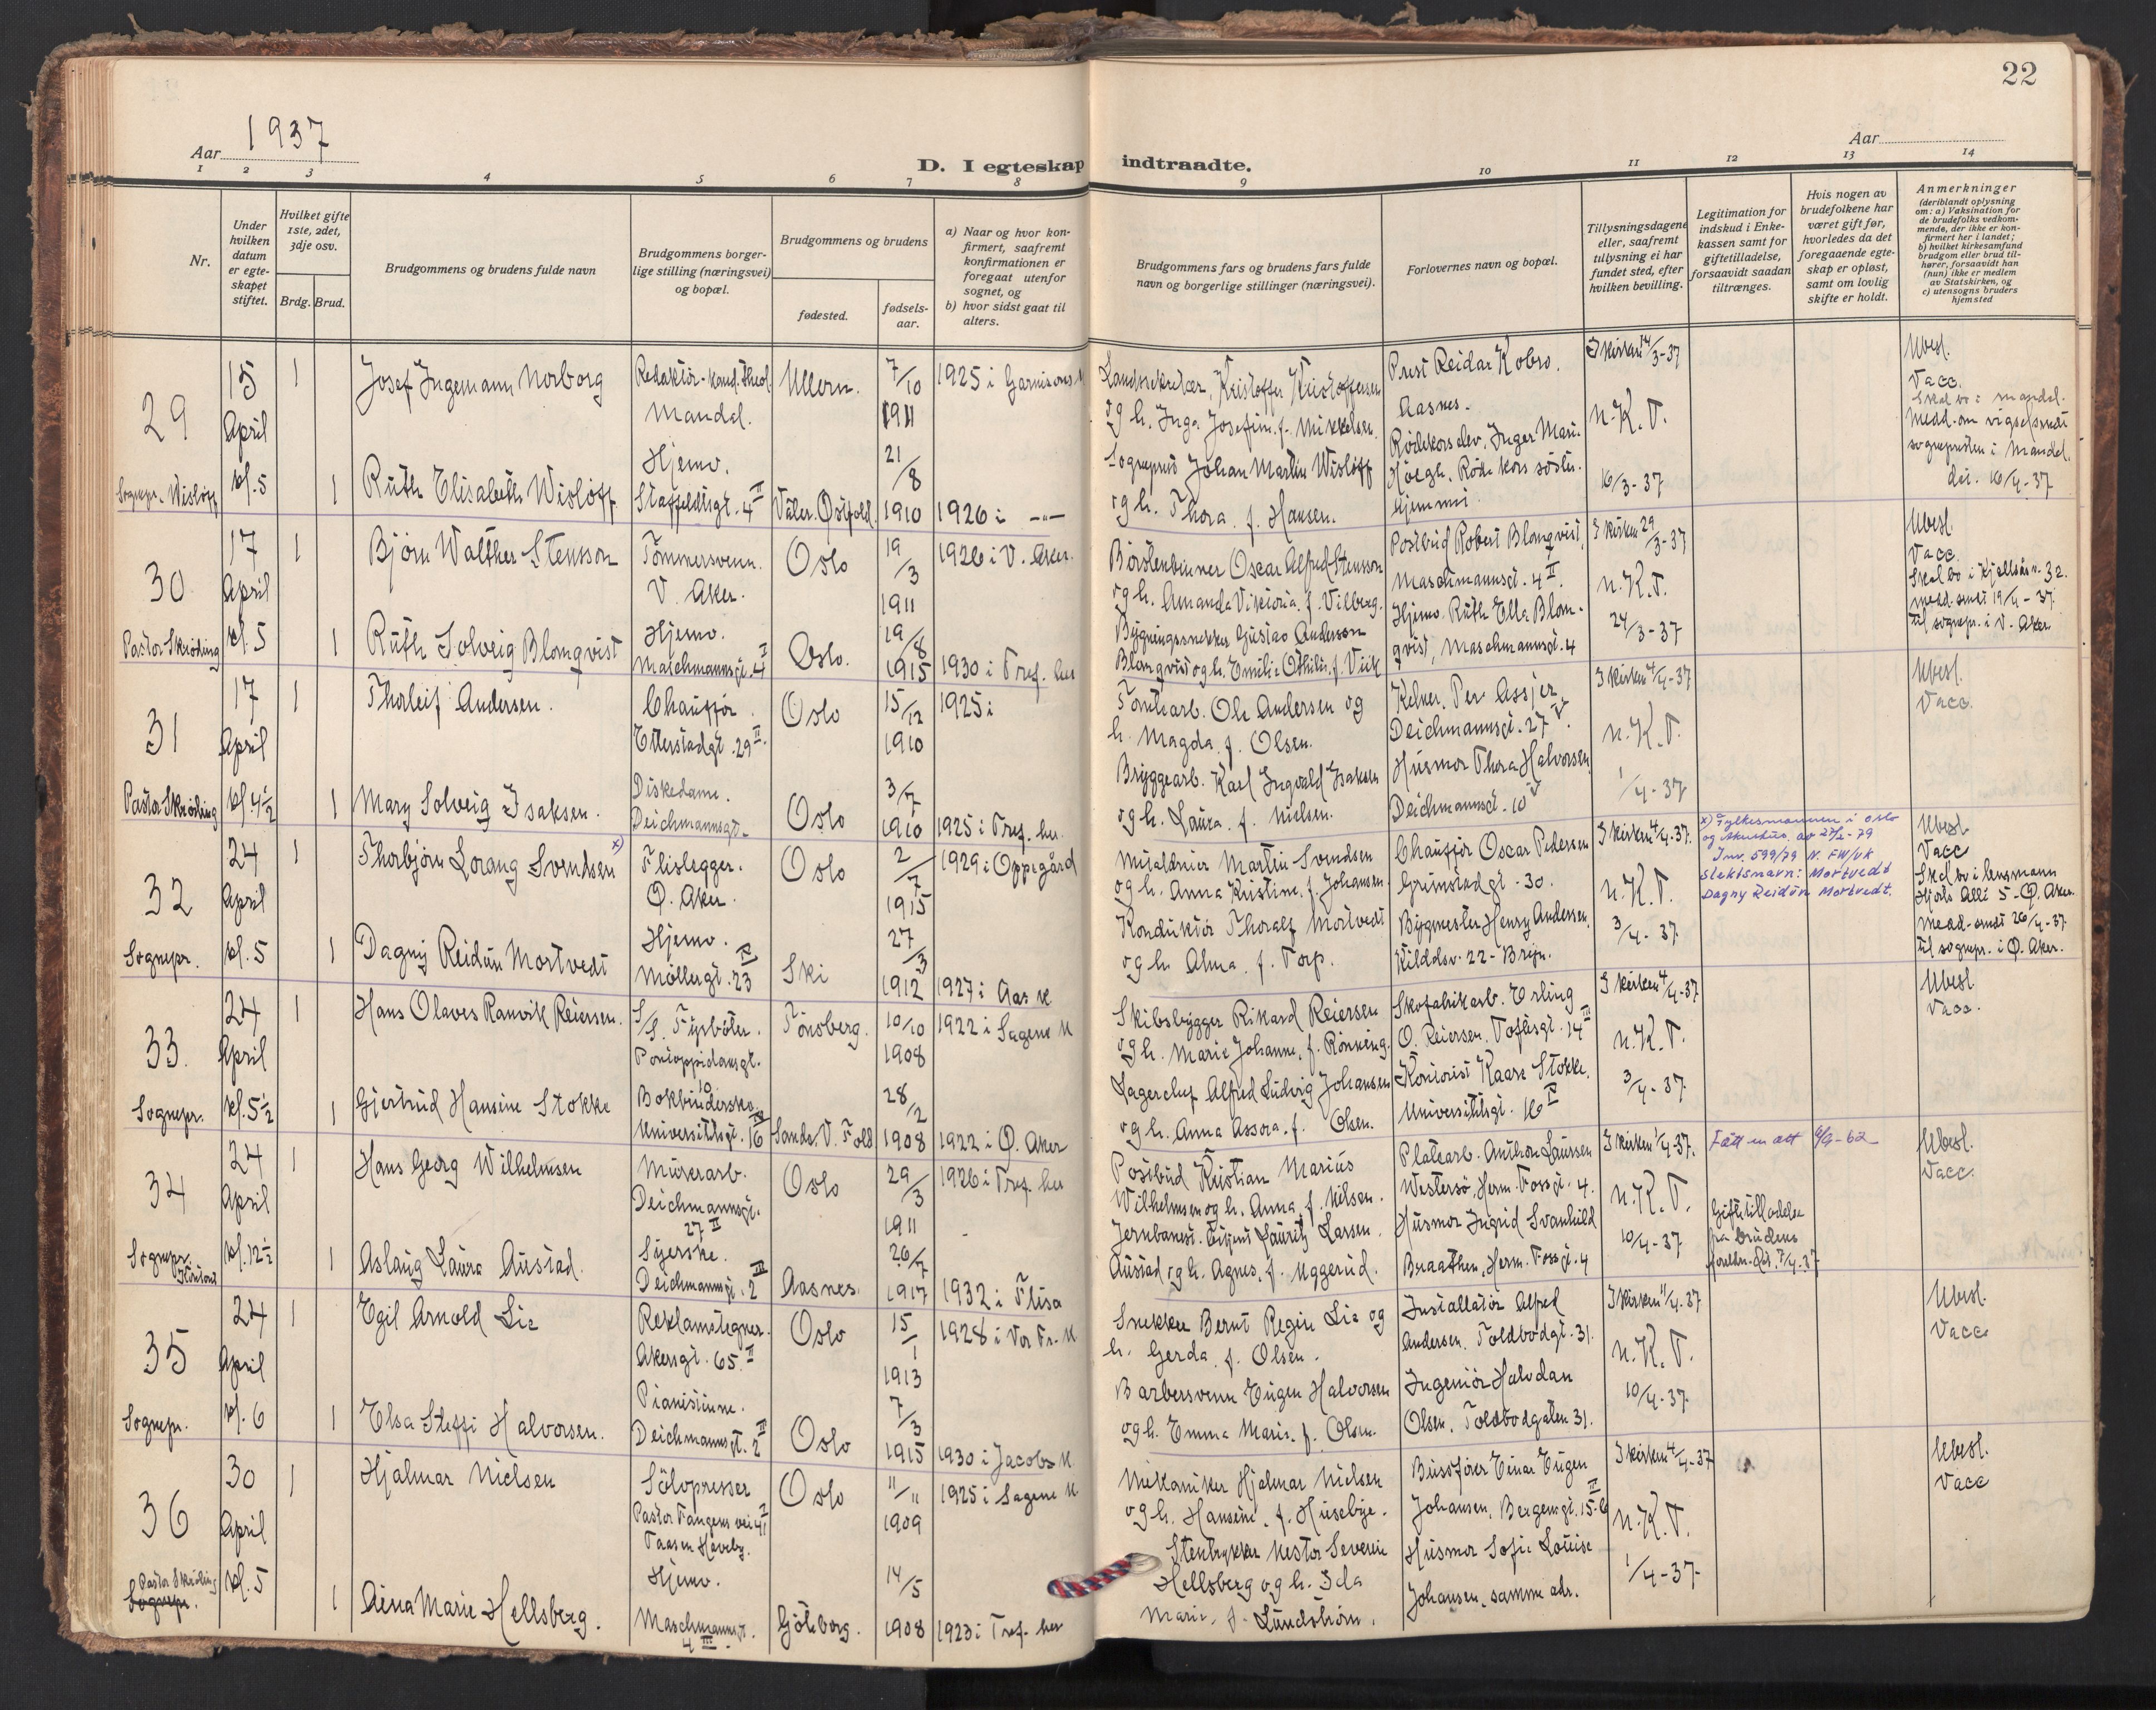 22
Aar 1937
D. I egteskap indtraadte.
Aar
1 2 3 4 5 6 7 8 9 10 11 12 13 14
Nr.
Under hvilken datum er egteskapet stiftet.
Hvilket gifte 1ste, 2det, 3dje osv.
Brdg. Brud.
Brudgommens og brudens fulde navn
Brudgommens borgerlige stilling (næringsvei) og bopæl.
Brudgommens og brudens
fødested.
fødselsaar.
a) Naar og hvor konfirmert, saafremt konfirmationen er foregaat utenfor sognet, og
b) hvor sidst gaat til alters.
Brudgommens fars og brudens fars fulde navn og borgerlige stillinger (næringsvei).
Forlovernes navn og bopæl.
Tillysningsdagene eller, saafremt tillysning ei har fundet sted, efter hvilken bevilling.
Legitimation for indskud i Enkekassen samt for giftetilladelse, forsaavidt saadan tiltrænges.
Hvis nogen av brudefolkene har været gift før, hvorledes da det foregaaende egteskap er opløst, samt om lovlig skifte er holdt.
Anmerkninger (deriblandt oplysning om: a) Vaksination for de brudefolks vedkommende, der ikke er konfirmert her i landet; b) hvilket kirkesamfund brudgom eller brud tilhører, forsaavidt han (hun) ikke er medlem av Statskirken, og c) utensogns bruders hjemsted
29
15 April kl. 5
Sognepr. Wisløff
1 Josef Ingemann Norborg
Redaktör - kand. theol. Mandal.
Ullern. 7/10 1911
1925 i Garnisons k
Landssekretær, Kristoffer Kristoffersen
og h. Inga Josefine f. Mikkelsen.
Prest Reidar Kobro. Aasnes.
I kirken 14/3-37
n.K.T.
16/3-37
Ubesl.
Vacc.
Skal bo i Mandal.
Medd. om vigsel sendt
sognepresten i Mandal
dei. 16/4-37
1 Ruth Elisabeth Wisløff
Hjemv. Staffeldtsgt. 4 II
Våler. Østfold. 21/8 1910
1926 i —"—
Sogneprest Johan Martin Wisløff
og h. Thora. f. Hansen.
Rödekorselev. Inger Marie
Höegh. Röde kors söster.
hjemmi
30
17 April kl. 5
Pastor Skröding
1 Björn Walther Stensson
Tömmersvenn. V. Aker.
Oslo 19/3 1911
1926 i V. Aker.
Börstenbinner Oscar Alfred Stensson
og h. Amanda Viktoria. f. Vilberg.
Postbud Robert Blomqvist,
Maschmannsgt. 4 II.
I kirken 29/3-37
n.K.T.
24/3-37
Ubesl.
Vacc.
Skal bo i Kjellåsv. 32.
medd. sendt 19/4-37.
til sognepr. i V. Aker
1 Ruth Solveig Blomqvist
Hjemv. Maschmannsgt. 4 I
Oslo. 19/8 1915
1930 i Tref. her
Bygningssnekker Gustav Anderson
Blomqvist og h. Emilie Othilie. f. Viik
Hjemv. Ruth Ella Blomqvist, Maschmannsgt. 4
31
17 April kl. 4½
Pastor Skröding
1 Thorleif Andersen.
Chaufför. Etterstadgt. 29 II.
Oslo 15/12 1910
1925 i
Tomtearb. Ole Andersen og
h. Magda. f. Olsen.
Kelner, Per Assjer
Deichmannsgt. 27 V.
I kirken 4/4-37
n.K.T.
1/4-37
Ubesl.
Vacc.
1 Mary Solveig Isaksen.
Diskedame. Deichmannsgt.
Oslo 3/7 1910
1925 i Tref. her.
Bryggearb. Karl Ingvald Isaksen
og h. Laura. f. Nielsen.
Husmor Thora Halvorsen,
Deichmannsgt. 10 V
32
24 April kl. 5
Sognepr.
1 Thorbjörn Lorang Svendsen x)
Flislegger. Ö. Aker.
Oslo 2/7 1915
1929 i Oppegård
Murarbeider Martin Svendsen
og h. Anna Kristine, f. Johansen.
Chauffør Oscar Pedersen
Grünstadgt. 30.
I kirken 4/4-37.
n.K.T.
3/4-37.
x) Fylkesmannen i Oslo
og Akershus, av 27/2-79
Jnr. 599/79 N. FW/UK
slektsnavn: Mortvedt
Dagny Reidun Mortvedt.
Ubesl.
Vacc
Skal bo i Lensmann
Hjorts Allé 5 - Ö. Aker.
medd. sendt 26/4-37.
til sognepr. i Ö. Aker.
1 Dagny Reidun Mortvedt
Hjemv. Möllergt. 23 IV
Ski 27/3 1912
1927 i Aas k
Konduktør Thoralf Mortvedt
og h. Alma. f. Torp.
Bygmester Henry Andersen.
Kilddsv. 22 - Bryn.
33.
24 April kl. 5½
Sognepr.
1 Hans Olaves Ranvik Reiersen.
S/S. Fyrböter. Pontoppidansgt. 10
Tönsberg. 10/10 1908
1922 i Sagene k
Skibsbygger Rikard Reiersen
og h. Marie Johanne, f. Rönning.
Skofabrikarb. Erling
O. Reiersen. Toftesgt. 14 III
I kirken 4/4-37
n.K.T.
3/4-37.
Ubesl
Vacc.
1 Gjertrud Hansine Stokke
Bokbinderske. Universitetsgt. 16 IV
Sande. V. Fold 28/2 1908
1922 i Ö. Aker
Lagerchef Alfred Ludvig Johansen
og h. Anna Assora. f. Olsen.
Kontorist Kaare Stokke.
Universitetsgt. 16 IV
34
24 April kl. 12½
Sognepr.
1 Hans Georg Wilhelmsen
Murerarb. Deichmannsgt. 27 II
Oslo 29/3 1911
1926 i Tref. her
Postbud Kristian Marius
Wilhelmsen og h. Anna, f. Nilsen.
Platearb. Anthon Laurssen
Westersö, Herm. Fossgt. 4.
I kirken 1/4-37.
n.K.T.
10/4-37
Fått en att 6/9-62
Giftetilladelse
fra brudens
foreldre. Dat. 7/4-37
Ubesl.
Vacc.
1 Aslaug Laura Austad.
Syerske. Deichmannsgt. 2 III
Aasnes. 26/7 1917
1932 i Flisa
Jernbanest. Lauritz Larsen
Austad og h. Agnes, f. Uggerud.
Husmor Ingrid Svanhild
Braathen, Herm. Fossgt. 4
35
24 April kl. 6
Sognepr.
1 Egil Arnold Lie
Reklamtegner. Akersgt. 65. II
Oslo 15/1 1913
1928 i Vor Fr. k
Snekker Bernt Regin Lie og
h. Gerda. f. Olsen.
Installatör Alfred
Andersen. Toldbodgt. 31.
I kirken 11/4-37
n.K.T.
10/4-37.
Ubesl.
Vacc
1 Elsa Steffi Halvorsen.
Pianistinne. Deichmannsgt. 2 III
Oslo 7/3 1915
1930 i Jacobs k
Barbersvenn Eugen Halvorsen
og h. Emma Marie. f. Olsen.
Ingeniör Halvdan
Olsen. Toldbodgaten 31.
36
30 April kl. 5
Pastor Skröding
Sognepr.
1 Hjalmar Nielsen
Sölvpresser Pastor Fangens vei 41 I Taasen Haveby.
Oslo 11/11 1909
1925 i Sagene k
Mekaniker Hjalmar Nielsen
og h. Hansine. f. Huseby.
Bussfører Einar Eugen
Johansen, Bergensgt. 15 b III
I kirken 4/4-37
n.K.T.
1/4-37.
Ubesl.
Vacc
1 Aina Marie Hellsberg.
Hjemv. Maschmannsgt. 4 III.
Göteborg. 14/5 1908
1923 i Tref. her
Stentrykker Nestor Severin
Hellsberg og h. Ida
Marie, f. Lundström.
Husmor Sofie Louise
Johansen, samme adr.